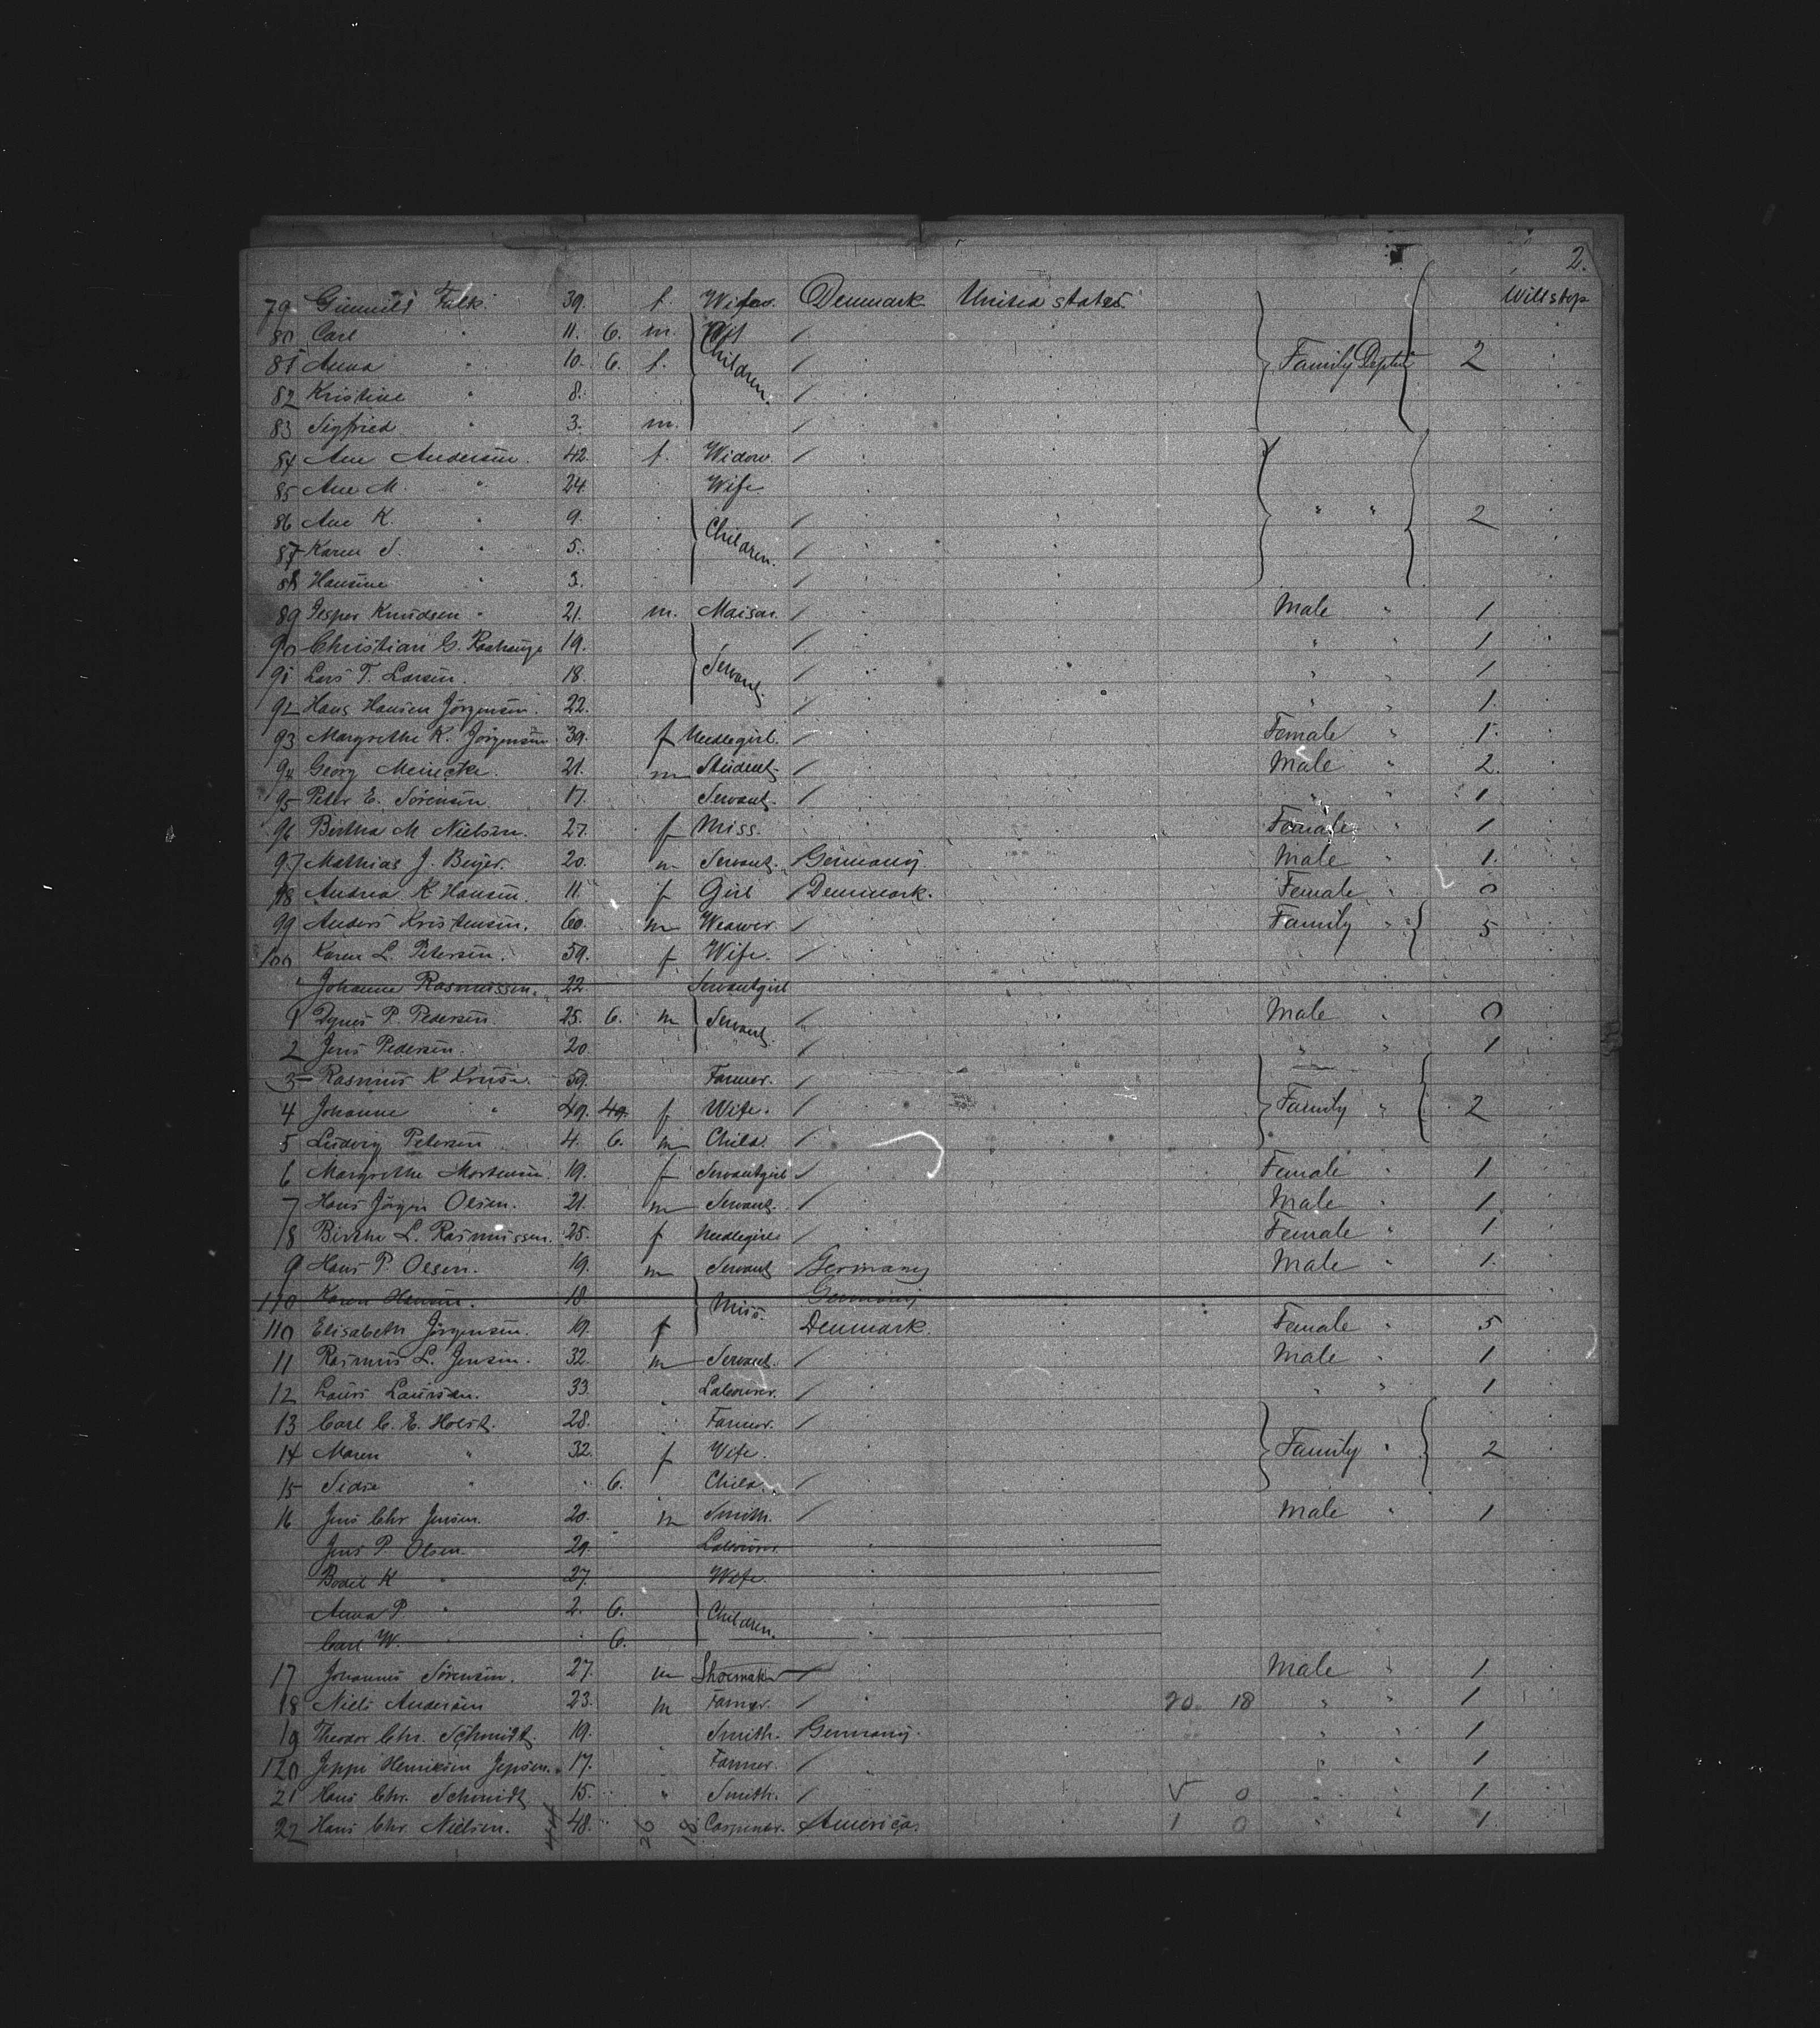 2.
79 Gunnild Falk. 39. f. Wife Denmark United states Will stop
80 Carl 11. 6. m.
81 Anna " 10. 6. f. Children. Family 2
82 Kristine " 8.
83 Sigfried " 3. m.
84 Ane Andersen. 42. f. Widow. /
85 Ane M. " 24 Wife
86 Ane K. " 9. Children. / " " 2
87 Karen S. " 5. /
88 Hansine " 3. /
89 Jesper Knudsen " 21. m. / Male " 1
90 Christian G. 19. / " " 1
91 Lars T. Larsen. 18. Servant. / " " 1
92 Hans Hansen Jörgensen. 22. / " " 1.
93 Margrethe K. Jörgensen 39. f Needlegirl. / Female " 1.
94 Georg Meinecke. 21. m Student / Male " 2.
95 Peter E. Sörensen 17. Servant. / " " 1
96 Birtha M Nielsen. 27. f Miss. Female " 1
97 Mathias J. Beyer. 20. m Servant. Germany. Male " 1.
98 Andrea K Hansen. 11. f Girl / Denmark. Female " 0
99 Anders Kristensen. 60. m Weawer / Family " 5
100 Karen L. Petersen. 59. f Wife. /
" Johanne Rasmussen. 22 Servantgirl
1 P. Pedersen. 25. 6. m Servant / Male " 0
2 Jens Pedersen. 20. / " " 1
3 Rasmus K Kruse. 59. Farmer. /
4 Johanne " 49. 49. f Wife. / Family " 2
5 Ludvig Petersen 4. 6. m Child. /
6 Margrethe Mortensen 19. f Servantgirl / Female " 1
7 Hans Jörgen Olsen. 21. m Servant. / Male " 1
8 Birthe L. Rasmussen. 25. f Needlegirl / Female " 1
9 Hans P. Olsen. 19. m Servant Germany Male " 1.
110 Karen Hansen. 18. Miss. Germany
110 Elisabeth Jörgensen. 19. f Denmark. Female " 5
11 Rasmus L. Jensen. 32. m Servant. / Male " 1
12 Laurs Laursen. 33. Labourer. / " " 1
13 Carl C. E. Holst. 28. Farmer. /
14 Maren " 32. f Wife. Family " 2
15 Sidse " " 6. Child. /
16 Jens Chr. Jensen. 20. m Smith. / Male " 1
Jens P Olsen. 29. Labourer.
Bodil K " 27. Wife.
Anna P. " 2. 6. Children.
Carl W. " 6.
17 Johannes Sörensen. 27. m Shoemaker / Male " 1
18 Niels Andersen 23. m Farmer. / 20 18 " " 1
19 Theodor Chr. Schmidt. 19. Smith. Germany. " " 1
120 Jeppe Henriksen Jepsen. 17. Farmer / " " 1
21 Hans Chr. Schmidt 15. Smith. / 0 " " 1
22 Hans Chr. Nielsen. 44 48. 26 18 Carpenter. America. 1 0 " 1.